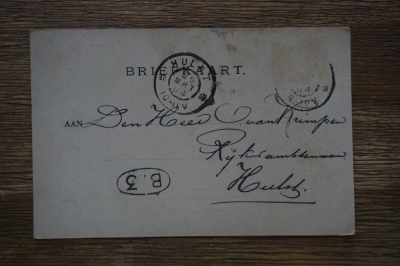 HULST
BRIEFKAART.
AAN Den Heer van Krimpen
Rijksambtenaar
Hulst.
B.3